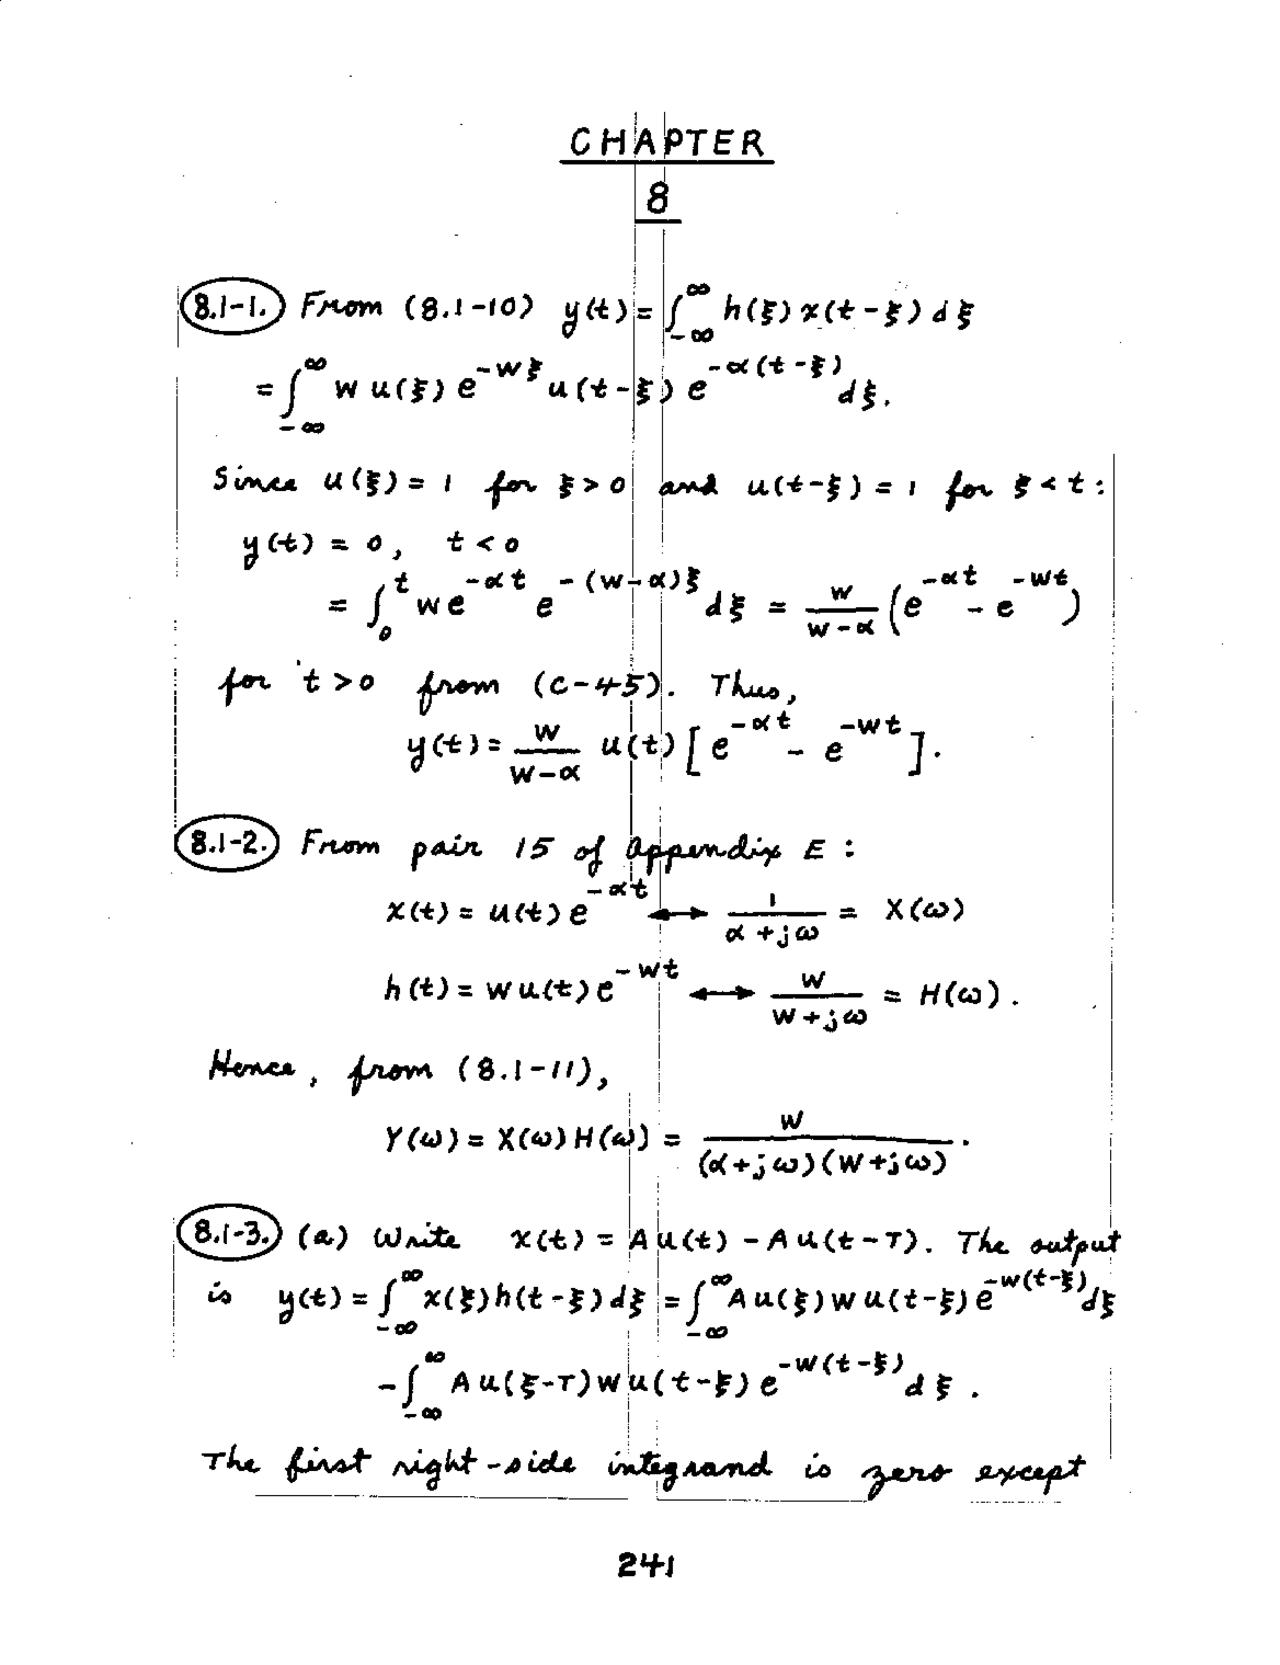 CHAPTER
8
8.1-1. From (8.1-10) y(t) = ∫_{-∞}^{∞} h(ξ) x(t-ξ) dξ
= ∫_{-∞}^{∞} W u(ξ) e^{-Wξ} u(t-ξ) e^{-α(t-ξ)} dξ.
Since u(ξ) = 1 for ξ > 0 and u(t-ξ) = 1 for ξ < t:
y(t) = 0, t < 0
= ∫_{0}^{t} W e^{-αt} e^{-(W-α)ξ} dξ = \frac{W}{W-α} (e^{-αt} - e^{-Wt})
for t > 0 from (C-45). Thus,
y(t) = \frac{W}{W-α} u(t) [e^{-αt} - e^{-Wt}].
8.1-2. From pair 15 of Appendix E:
x(t) = u(t) e^{-αt} ↔ \frac{1}{α+jω} = X(ω)
h(t) = W u(t) e^{-Wt} ↔ \frac{W}{W+jω} = H(ω).
Hence, from (8.1-11),
Y(ω) = X(ω) H(ω) = \frac{W}{(α+jω)(W+jω)}.
8.1-3. (a) Write x(t) = A u(t) - A u(t-T). The output
is y(t) = ∫_{-∞}^{∞} x(ξ) h(t-ξ) dξ = ∫_{-∞}^{∞} A u(ξ) W u(t-ξ) e^{-W(t-ξ)} dξ
- ∫_{-∞}^{∞} A u(ξ-T) W u(t-ξ) e^{-W(t-ξ)} dξ.
The first right-side integrand is zero except
241